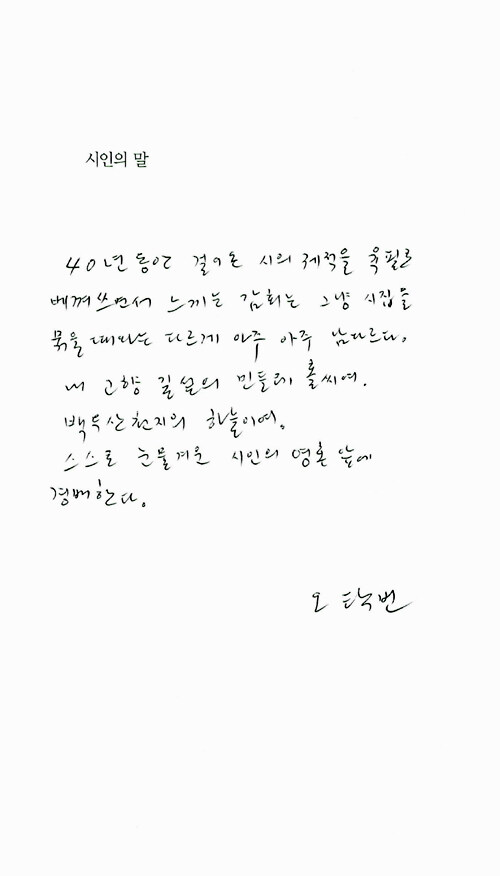 시인의 말
40년 동안 걸어온 시의 궤적을 육필로
베껴쓰면서 느끼는 감회는 그냥 시집을
묶을 때와는 다르게 아주 아주 남다르다.
내 고향 길섶의 민들레 홀씨여.
백두산 천지의 하늘이여.
스스로 눈물겨운 시인의 영혼 앞에
경배한다.
오탁번